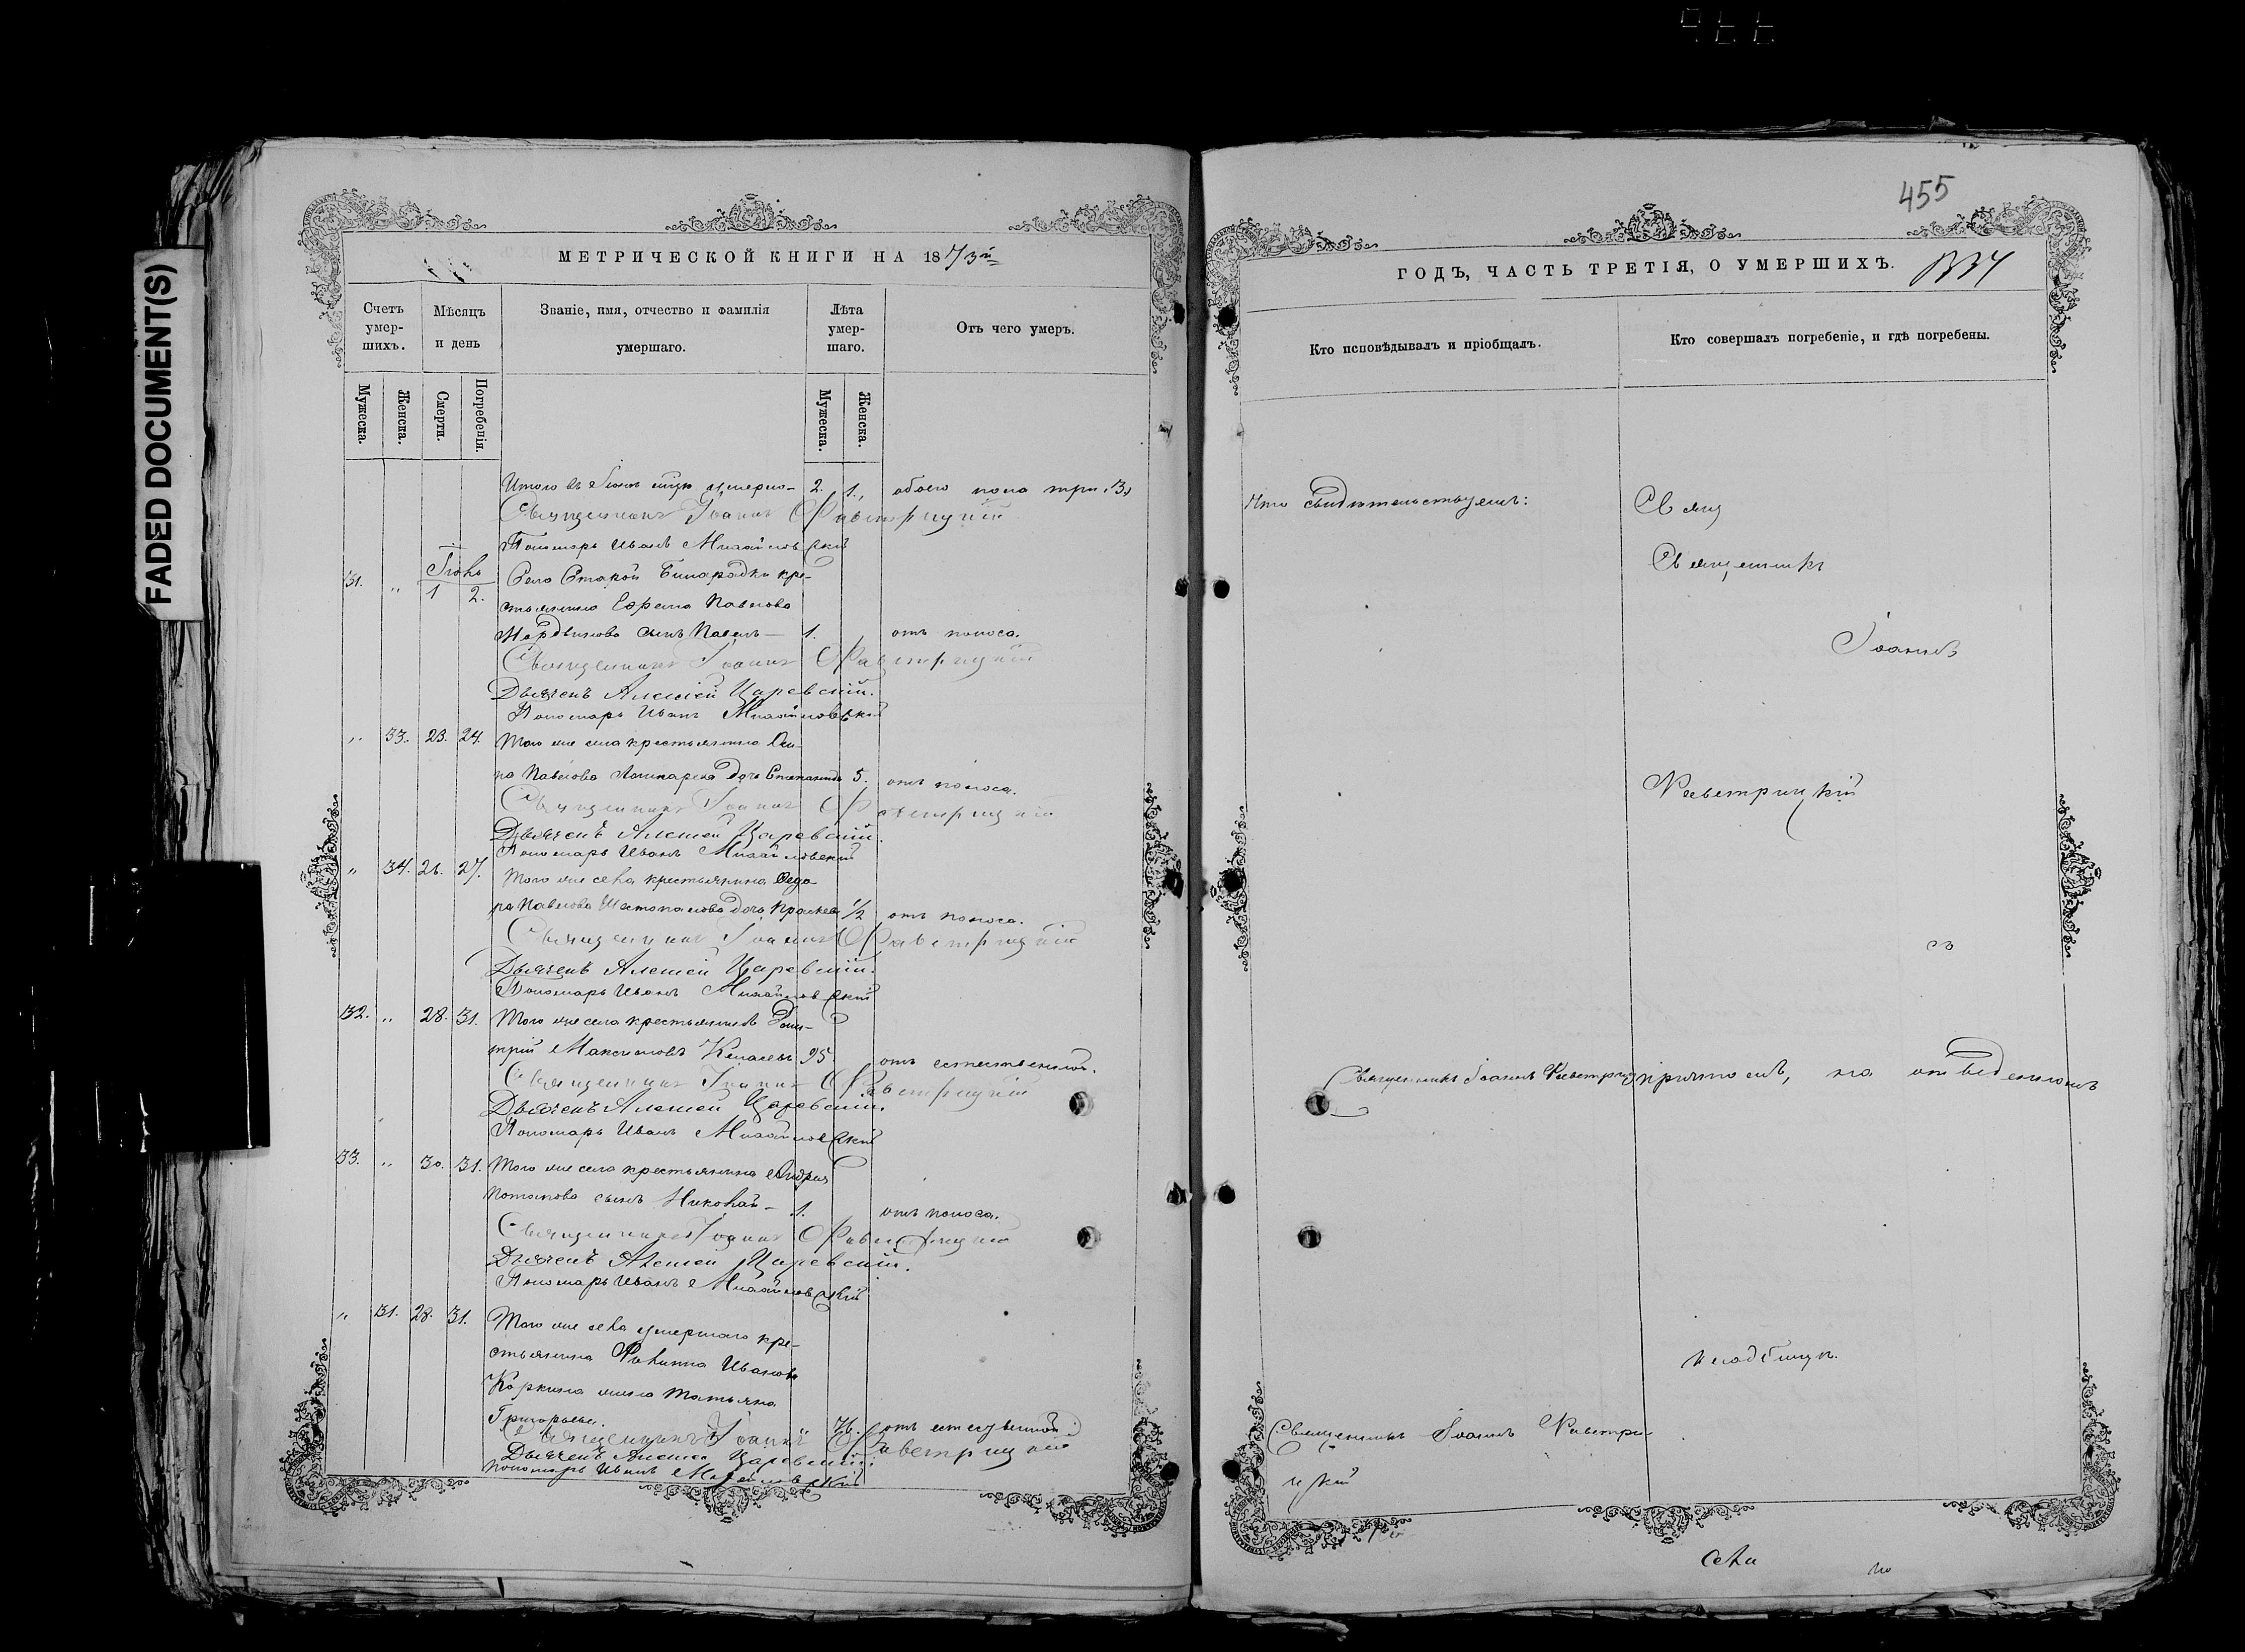 FADED DOCUMENT(S)
МЕТРИЧЕСКОЙ КНИГИ НА 1873й
Счетъ умер-шихъ.
Мѣсяцъ и день
Званіе, имя, отчество и фамилія умершаго.
Лѣта умер-шаго.
Отъ чего умеръ.
Мужеска.
Женска.
Смерти.
Погребенія.
Мужеска.
Женска.
Итого въ мцѣ умерло 2. 1., обоего пола три. 3,
Священникъ Іоаннъ Фаветрицкій
Пономарь Иванъ Михайловскій
31. „ 1 2. Села Старой Бинарадки кре-
стьянина Ефрема Павлова
сынъ Павелъ — 1. отъ поноса.
Священникъ Іоаннъ Фаветрицкій
Дьячекъ Алексѣй Царевскій.
Пономарь Иванъ Михайловскій
„ 33. 23. 24. Того же села крестьянина Оси-
па Павлова дочь Степанида 5. отъ поноса.
Священникъ Іоаннъ
Дьячекъ Алексѣй Царевскій.
Пономарь Иванъ Михайловскій
„ 34. 26. 27. Того же села крестьянина Ѳедо-
ра Павлова дочь 1/2 отъ поноса.
Священникъ Іоаннъ Фаветрицкій
Дьячекъ Алексѣй Царевскій.
Пономарь Иванъ Михайловскій
32. „ 28. 31. Того же села крестьянинъ Дми-
трій Максимовъ 95. отъ естественной.
Священникъ Іоаннъ Фаветрицкій
Дьячекъ Алексѣй Царевскій.
Пономарь Иванъ Михайловскій
33. „ 30. 31. Того же села крестьянина Андрея
Потапова сынъ Николай — 1. отъ поноса.
Священникъ Іоаннъ Фаветрицкій
Дьячекъ Алексѣй Царевскій.
Пономарь Иванъ Михайловскій
„ 31. 28. 31. Того же села умершаго кре-
стьянина Филиппа Иванова
Коркина жена Татьяна
Григорьева. 76. отъ естественной
Священникъ Іоаннъ Фаветрицкій
Дьячекъ Алексѣй Царевскій.
Пономарь Иванъ Михайловскій
455
ГОДЪ, ЧАСТЬ ТРЕТІЯ, О УМЕРШИХЪ.
Кто исповѣдывалъ и пріобщалъ.
Кто совершалъ погребеніе, и гдѣ погребены.
Что свидѣтельствуемъ:
Свящ
Священникъ
Іоаннъ
Фаветрицкій
съ
Священникъ Іоаннъ Фаветриц
причтомъ, на отведенномъ
кладбищѣ.
Священникъ Іоаннъ Фаветри-
цкій
села